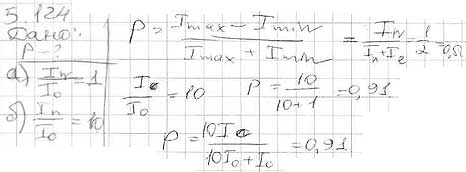 5.124
Дано:
P - ?
а) Iп/I₀ = 1
б) Iп/I₀ = 10
P = (Imax - Imin)/(Imax + Imin) = Iп/(Iп + Ie) = 1/2 = 0,5
I₀/I₀ = 10 P = 10/(10+1) = 0,91
P = 10I₀/(10I₀ + I₀) = 0,91